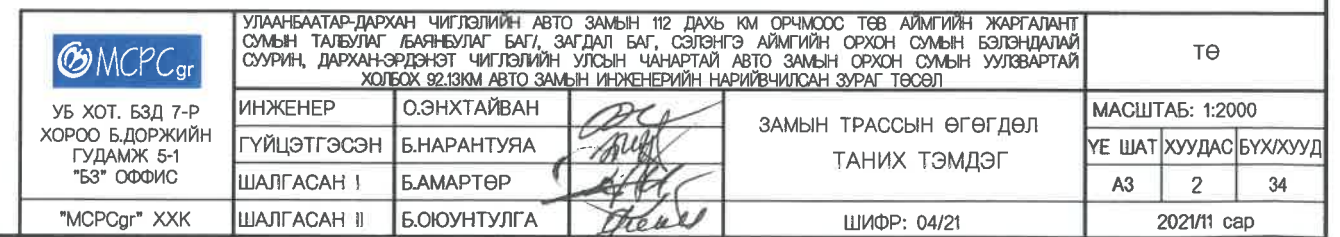 MCPCgr
УБ ХОТ. БЗД 7-Р
ХОРОО Б.ДОРЖИЙН
ГУДАМЖ 5-1
"БЗ" ОФФИС
"MCPCgr" ХХК
УЛААНБААТАР-ДАРХАН ЧИГЛЭЛИЙН АВТО ЗАМЫН 112 ДАХЬ КМ ОРЧМООС ТӨВ АЙМГИЙН ЖАРГАЛАНТ
СУМЫН ТАЛБУЛАГ /БАЯНБУЛАГ БАГ/, ЗАГДАЛ БАГ, СЭЛЭНГЭ АЙМГИЙН ОРХОН СУМЫН БЭЛЭНДАЛАЙ
СУУРИН, ДАРХАН-ЭРДЭНЭТ ЧИГЛЭЛИЙН УЛСЫН ЧАНАРТАЙ АВТО ЗАМЫН ОРХОН СУМЫН УУЛЗВАРТАЙ
ХОЛБОХ 92.13КМ АВТО ЗАМЫН ИНЖЕНЕРИЙН НАРИЙВЧИЛСАН ЗУРАГ ТӨСӨЛ
ИНЖЕНЕР О.ЭНХТАЙВАН
ГҮЙЦЭТГЭСЭН Б.НАРАНТУЯА
ШАЛГАСАН I Б.АМАРТӨР
ШАЛГАСАН II Б.ОЮУНТУЛГА
ЗАМЫН ТРАССЫН ӨГӨГДӨЛ
ТАНИХ ТЭМДЭГ
ШИФР: 04/21
ТӨ
МАСШТАБ: 1:2000
ҮЕ ШАТ ХУУДАС БҮХ/ХУУД
А3 2 34
2021/11 сар